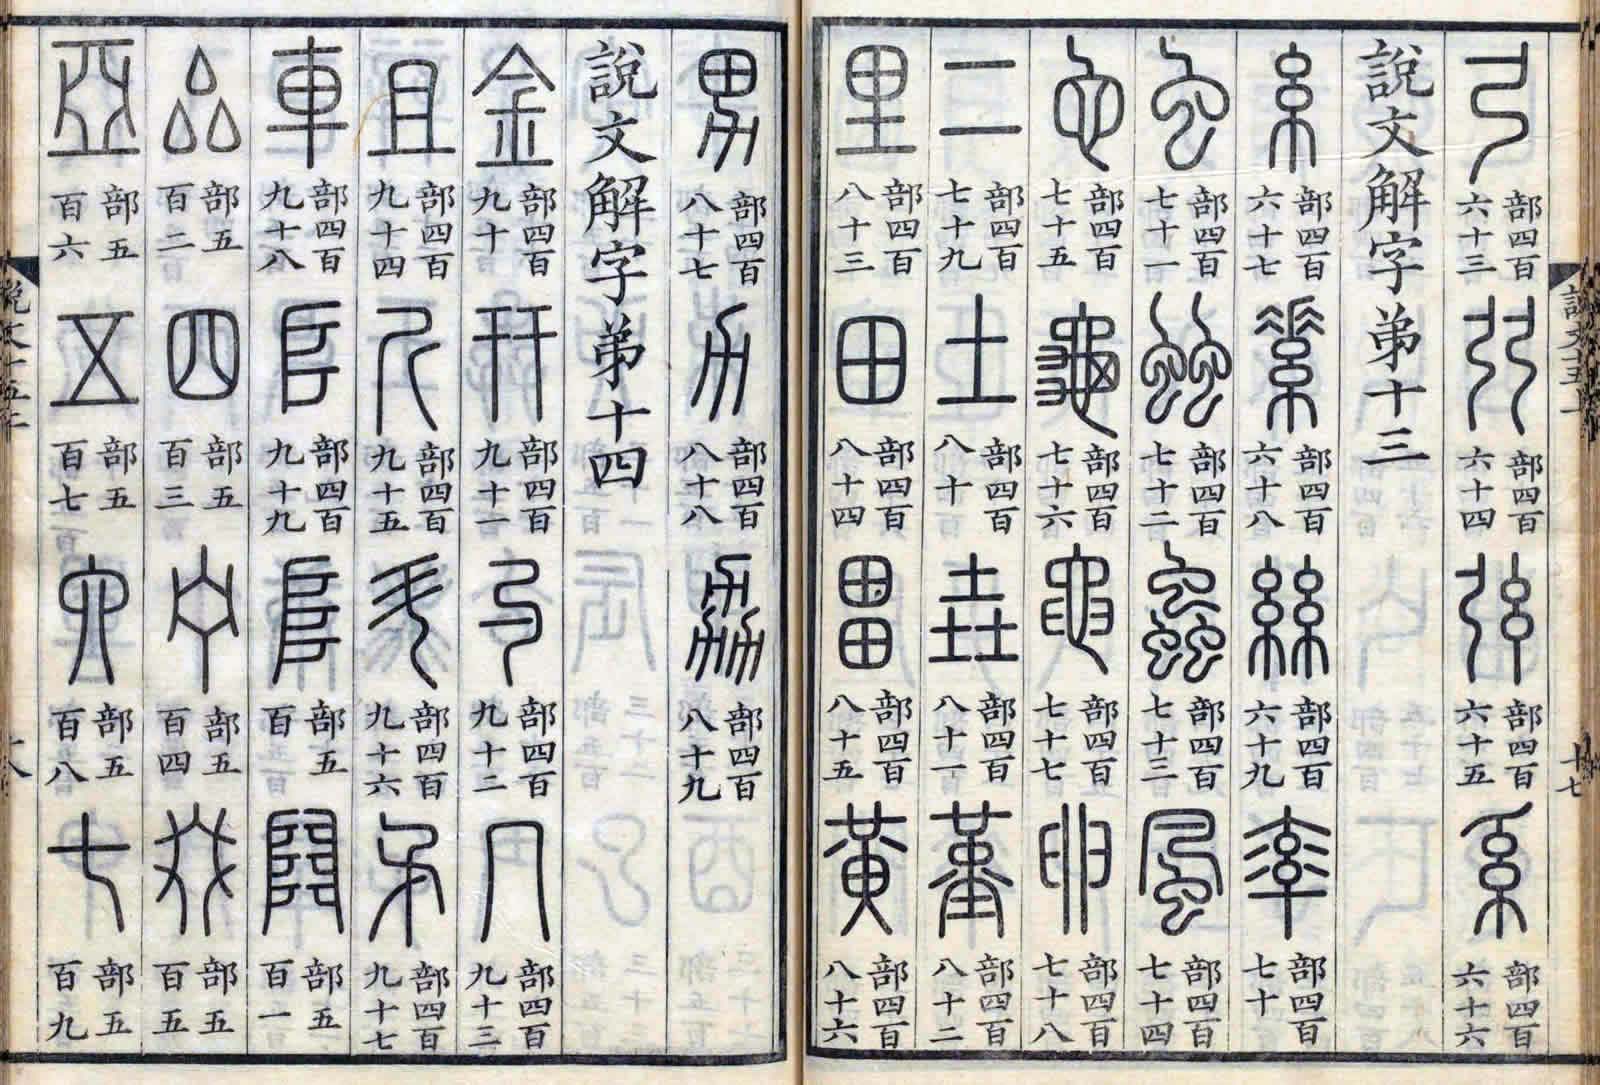 弓 部四百六十三 弜 部四百六十四 弦 部四百六十五 系 部四百六十六
說文解字弟十三
糸 部四百六十七 素 部四百六十八 絲 部四百六十九 率 部四百七十
虫 部四百七十一 䖵 部四百七十二 蟲 部四百七十三 風 部四百七十四
它 部四百七十五 龜 部四百七十六 黽 部四百七十七 卵 部四百七十八
二 部四百七十九 土 部四百八十 垚 部四百八十一 堇 部四百八十二
里 部四百八十三 田 部四百八十四 畕 部四百八十五 黃 部四百八十六
男 部四百八十七 力 部四百八十八 劦 部四百八十九
說文解字弟十四
金 部四百九十 幵 部四百九十一 勺 部四百九十二 几 部四百九十三
且 部四百九十四 斤 部四百九十五 斗 部四百九十六 矛 部四百九十七
車 部四百九十八 𠂤 部四百九十九 𨸏 部五百 𨺅 部五百一
厽 部五百二 四 部五百三 宁 部五百四 叕 部五百五
亞 部五百六 五 部五百七 六 部五百八 七 部五百九